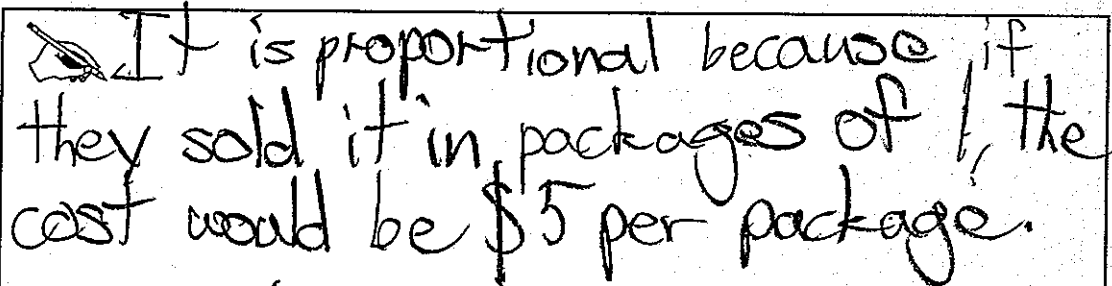 It is proportional because if
they sold it in packages of 1, the
cost would be $5 per package.